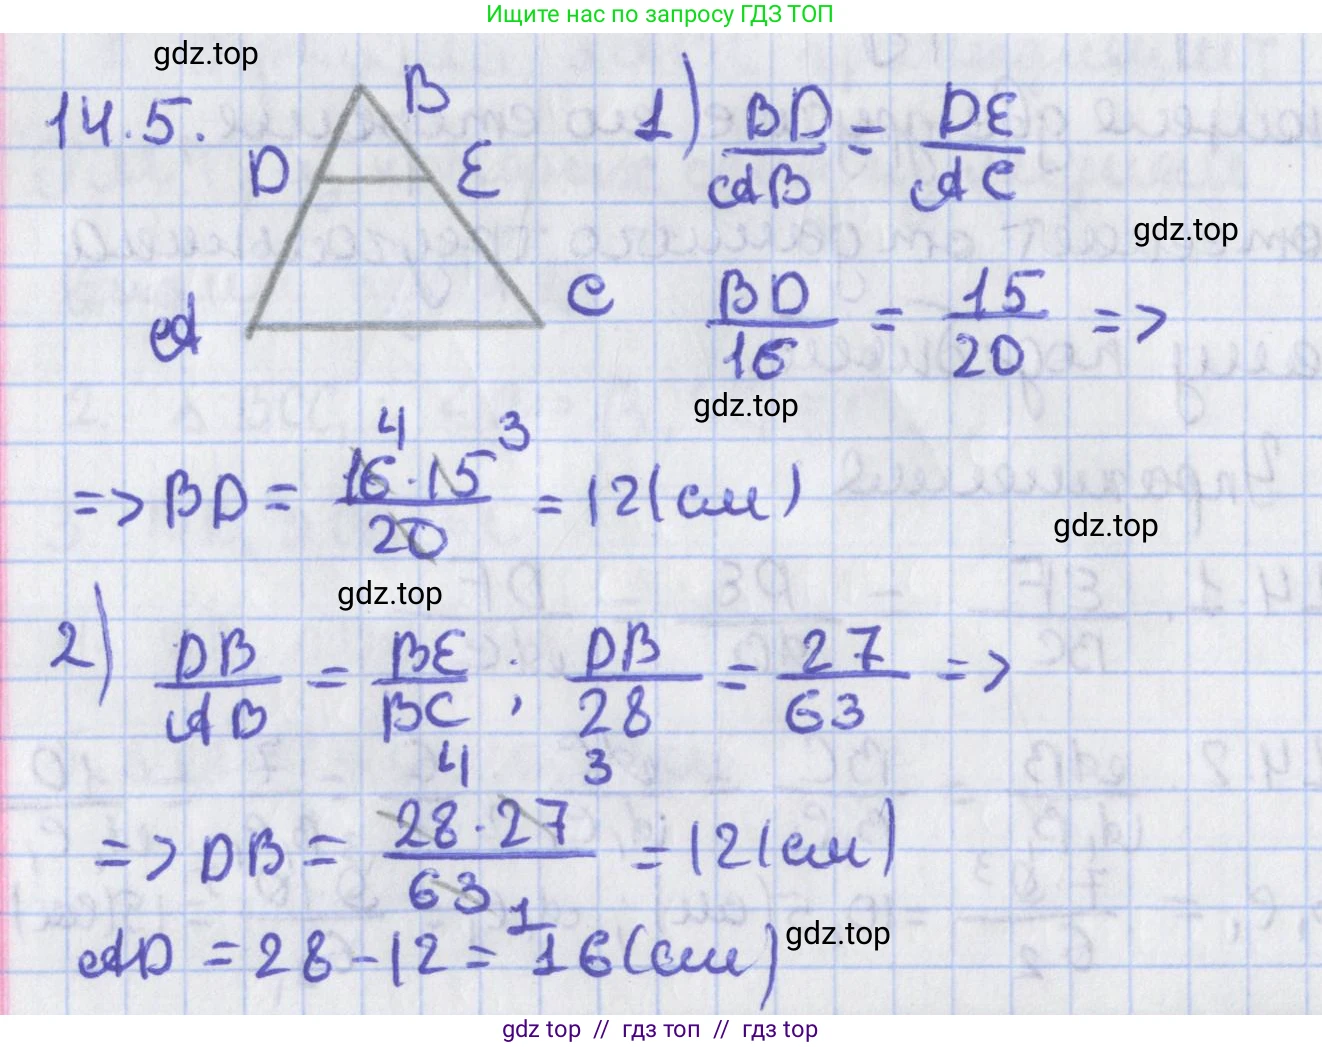 Ищите нас по запросу ГДЗ ТОП
gdz.top
14.5.
B
D
E
A
C
1) BD/AB = DE/AC
gdz.top
BD/16 = 15/20 =>
gdz.top
=> BD = 16·15/20 = 12(см)
4 3
gdz.top
gdz.top
2) DB/AB = BE/BC ; DB/28 = 27/63 =>
4 3
=> DB = 28·27/63 = 12(см)
1
AD = 28 - 12 = 16(см)
gdz.top
gdz top // гдз топ // gdz top